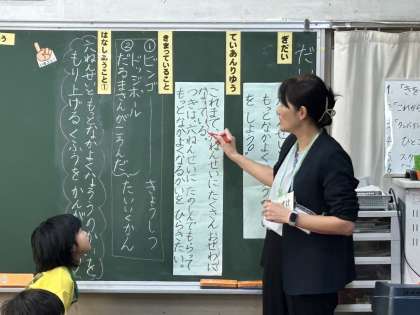 ぎだい
もっとなかよくな
をしよう
ていあんりゆう
これまで、六ねんせいにたくさんおせわに
なっている。
つぎは、六ねんせいにたのしんでもらって
もっとなかよくなるかいをひらきたい。
きまっていること
①ビンゴ きょうしつ
ドッジボール
②だるまさんがころんだ たいいくかん
はなしあうこと①
六ねんせいともっとなかよくなろうのかいを
もり上げるくふうをかんが
う